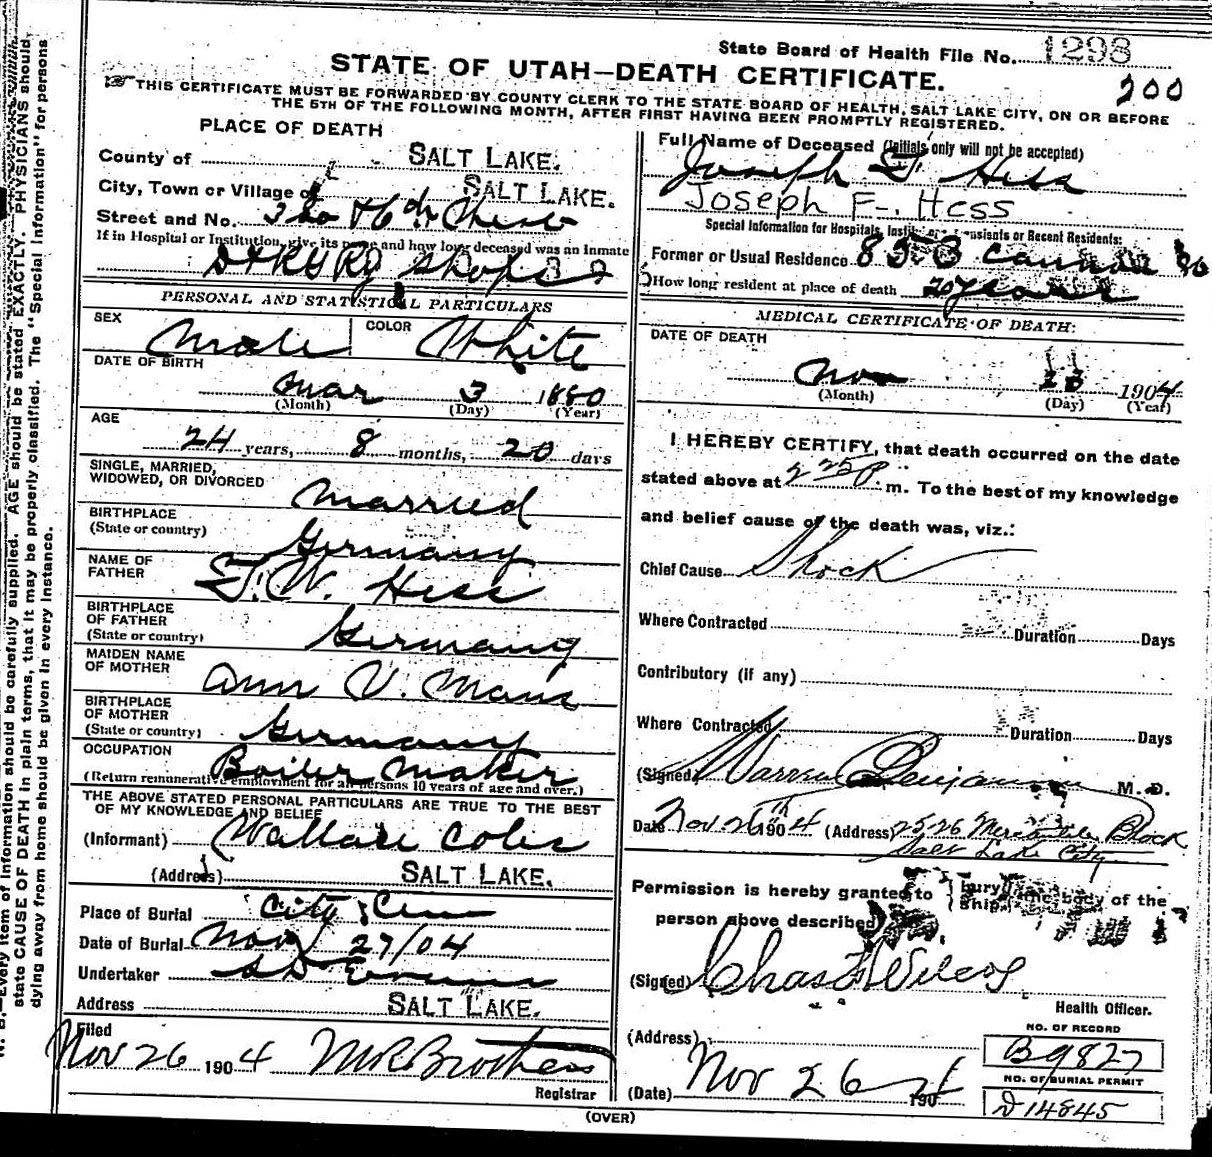 State Board of Health File No. 1298
STATE OF UTAH—DEATH CERTIFICATE.
200
THIS CERTIFICATE MUST BE FORWARDED BY COUNTY CLERK TO THE STATE BOARD OF HEALTH, SALT LAKE CITY, ON OR BEFORE
THE 5TH OF THE FOLLOWING MONTH, AFTER FIRST HAVING BEEN PROMPTLY REGISTERED.
PLACE OF DEATH
County of SALT LAKE.
City, Town or Village of SALT LAKE.
Street and No.
If in Hospital or Institution, give its name and how long deceased was an Inmate
Shops
PERSONAL AND STATISTICAL PARTICULARS
SEX Male COLOR White
DATE OF BIRTH
Mar 3 1880
(Month) (Day) (Year)
AGE
24 years, 8 months, 20 days
SINGLE, MARRIED,
WIDOWED, OR DIVORCED Married
BIRTHPLACE
(State or country) Germany
NAME OF
FATHER F. W. Hess
BIRTHPLACE
OF FATHER
(State or country) Germany
MAIDEN NAME
OF MOTHER Ann V.
BIRTHPLACE
OF MOTHER
(State or country) Germany
OCCUPATION Boiler Maker
(Return remunerative employment for all persons 10 years of age and over.)
THE ABOVE STATED PERSONAL PARTICULARS ARE TRUE TO THE BEST
OF MY KNOWLEDGE AND BELIEF
(Informant) Wallace Coles
(Address) SALT LAKE.
Place of Burial City Cem
Date of Burial Nov 27/04
Undertaker S D Evans
Address SALT LAKE.
Filed
Nov 26 1904 M R Brothers
Registrar
Full Name of Deceased (Initials only will not be accepted)
Joseph F. Hess
Joseph F. Hess
Special Information for Hospitals, Institutions, Transients or Recent Residents:
Former or Usual Residence
How long resident at place of death 20 years
MEDICAL CERTIFICATE OF DEATH:
DATE OF DEATH
Nov 23 1904
(Month) (Day) (Year)
I HEREBY CERTIFY, that death occurred on the date
stated above at 2 25 P. m. To the best of my knowledge
and belief cause of the death was, viz.:
Chief Cause Shock
Where Contracted Duration Days
Contributory (if any)
Where Contracted Duration Days
(Signed) Warren Benjamin M. D.
Date Nov 26th 1904 (Address) 2526 Mercantile Block
Salt Lake City
Permission is hereby granted to bury ship the body of the
person above described
(Signed) Chas F Wilcox
Health Officer.
(Address)
(Date) Nov 26 1904
NO. OF RECORD
B9827
NO. OF BURIAL PERMIT
D14845
(OVER)
N. B.—Every item of information should be carefully supplied. AGE should be stated EXACTLY. PHYSICIANS should
state CAUSE OF DEATH in plain terms, that it may be properly classified. The "Special Information" for persons
dying away from home should be given in every instance.